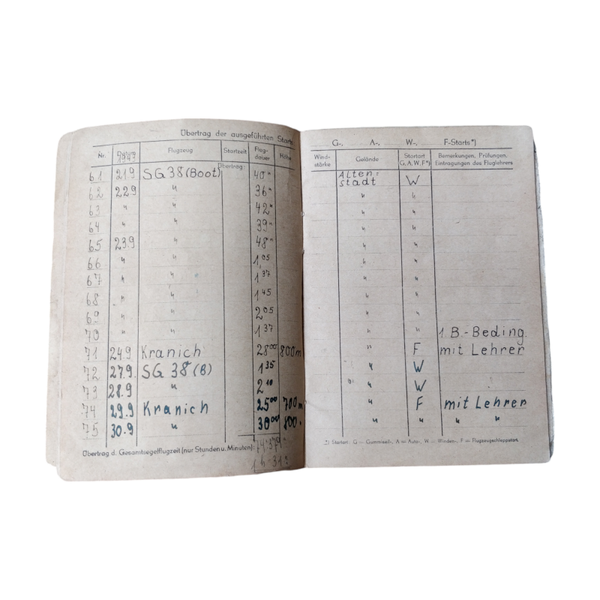 Übertrag der ausgeführten Starts
G-, A-, W-, F-Starts*)
Nr. Flugzeug Startzeit Flug-dauer Höhe Wind-stärke Gelände Startart G, A, W, F*) Bemerkungen, Prüfungen, Eintragungen des Fluglehrers
Übertrag:
61 21.9 SG 38 (Boot) 40" Alten-stadt W
62 22.9 " 36" " "
63 " " 42" " "
64 " " 39" " "
65 23.9 " 48" " "
66 " " 1,05 " "
67 " " 1,37 " "
68 " " 1,45 " "
69 " " 2,05 " "
70 " " 1,37 " " 1. B.-Beding.
71 24.9. Kranich 28,00 800m " F mit Lehrer
72 27.9. SG 38 (B) 1,35 " W
73 28.9. " 2,10 " W
74 29.9 Kranich 25,00 700m " F mit Lehrer
75 30.9 " 39,00 800m " " " "
Übertrag d. Gesamtsegelflugzeit (nur Stunden u. Minuten):
*) Startart: G = Gummiseil-, A = Auto-, W = Winden-, F = Flugzeugschleppstart.